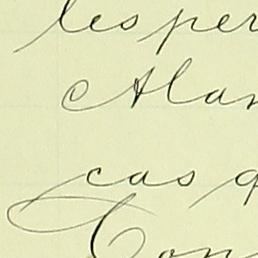 les per
Alan
cas q
Con